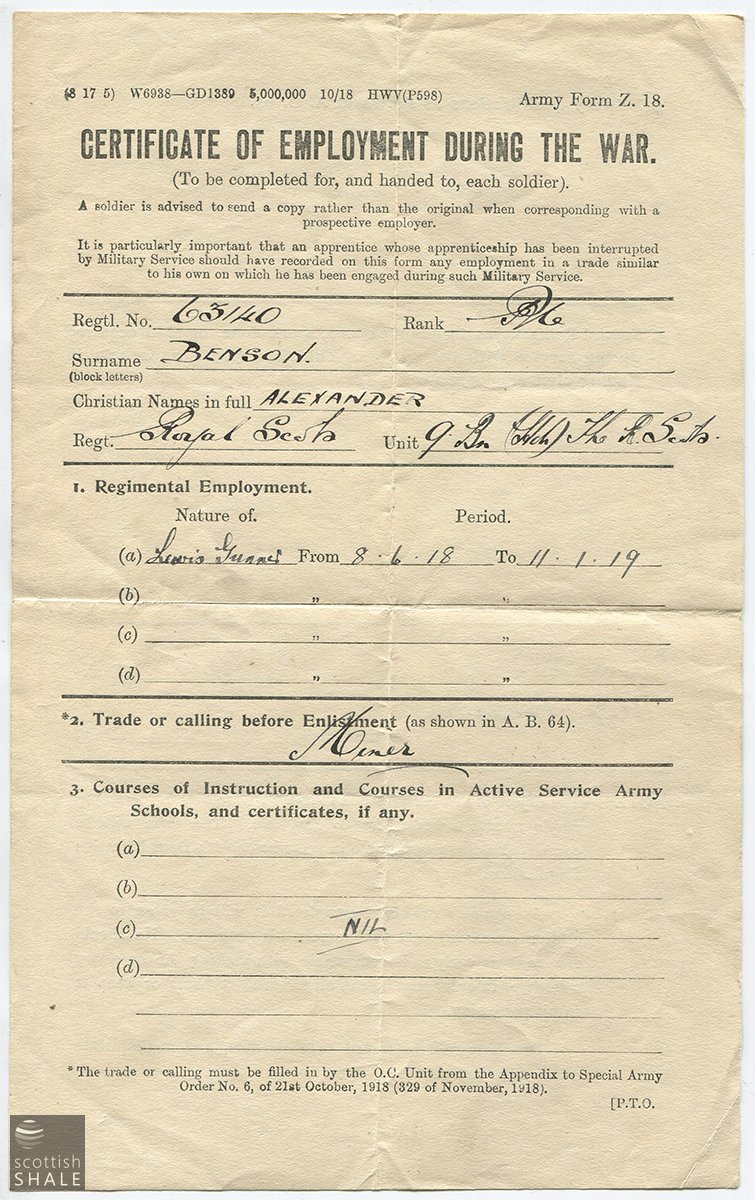 (8 17 5) W6938—GD1389 5,000,000 10/18 HWV(P598) Army Form Z. 18.
CERTIFICATE OF EMPLOYMENT DURING THE WAR.
(To be completed for, and handed to, each soldier).
A soldier is advised to send a copy rather than the original when corresponding with a
prospective employer.
It is particularly important that an apprentice whose apprenticeship has been interrupted
by Military Service should have recorded on this form any employment in a trade similar
to his own on which he has been engaged during such Military Service.
Regtl. No. 63140 Rank Pte
Surname BENSON.
(block letters)
Christian Names in full ALEXANDER
Regt. Royal Scots Unit 9 Bn (Hdrs) The R. Scots.
1. Regimental Employment.
Nature of. Period.
(a) Lewis Gunner From 8.6.18 To 11.1.19
(b) „ „
(c) „ „
(d) „ „
*2. Trade or calling before Enlistment (as shown in A. B. 64).
Miner
3. Courses of Instruction and Courses in Active Service Army
Schools, and certificates, if any.
(a)
(b)
(c) NIL
(d)
* The trade or calling must be filled in by the O.C. Unit from the Appendix to Special Army
Order No. 6, of 21st October, 1918 (329 of November, 1918).
[P.T.O.
scottish
SHALE